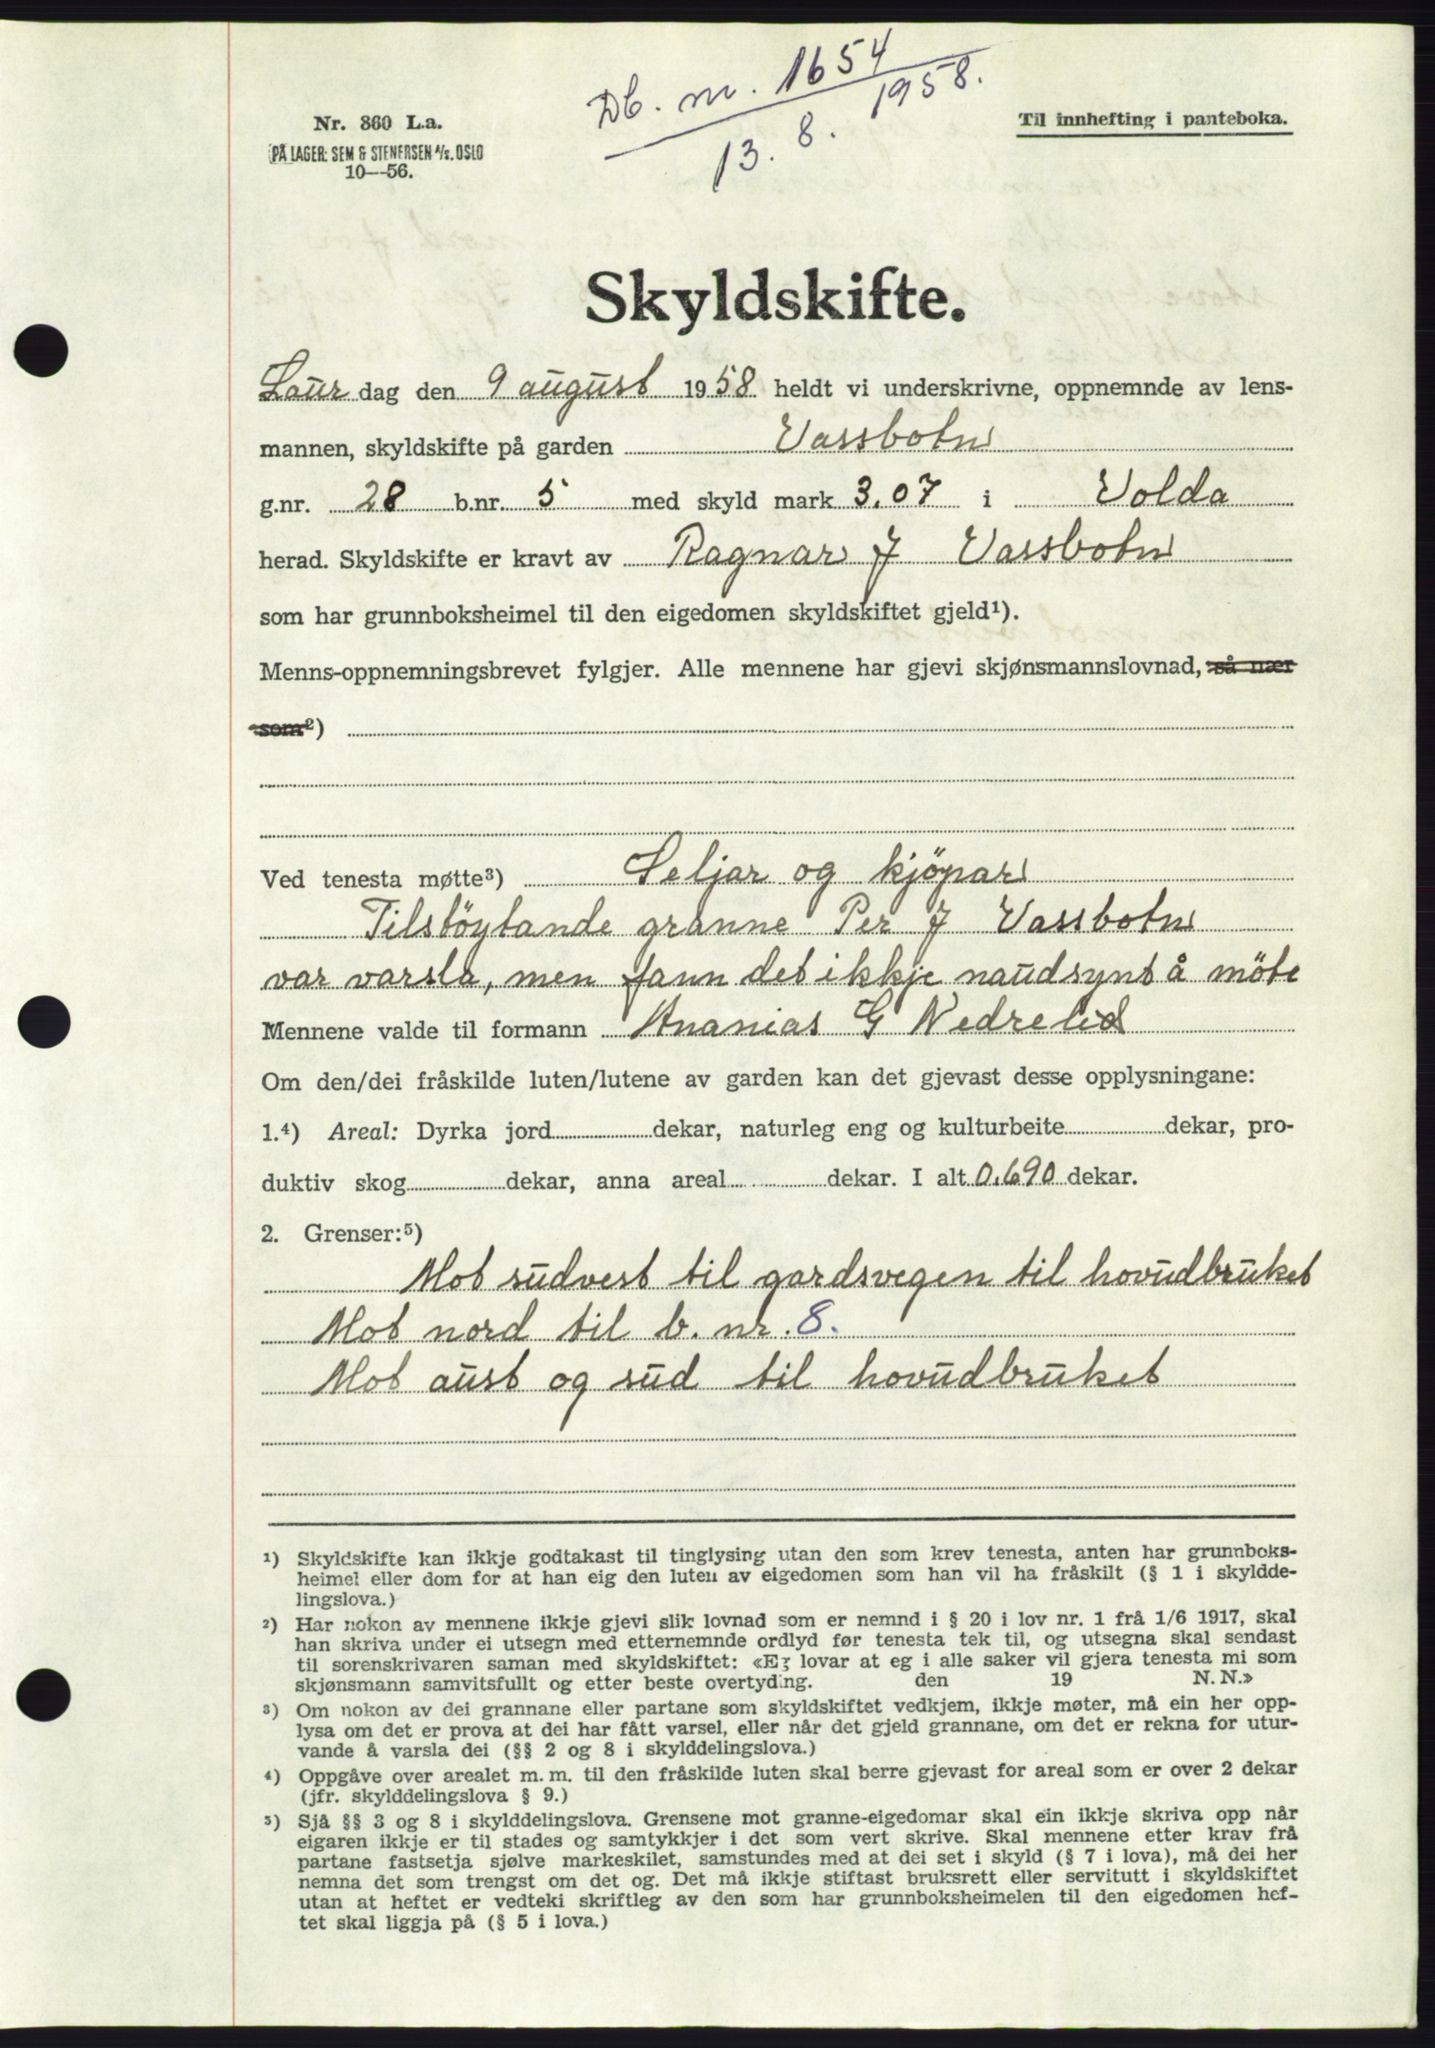 Db. nr. 1654
13. 8. 1958.
Nr. 360 L.a.
PÅ LAGER: SEM & STENERSEN A/S. OSLO
10—56.
Til innhefting i panteboka.
Skyldskifte.
Laur dag den 9 august 1958 heldt vi underskrivne, oppnemnde av lens-
mannen, skyldskifte på garden Vassbotn
g.nr. 28 b.nr. 5 med skyld mark 3.07 i Volda
herad. Skyldskifte er kravt av Ragnar J Vassbotn
som har grunnboksheimel til den eigedomen skyldskiftet gjeld¹).
Menns-oppnemningsbrevet fylgjer. Alle mennene har gjevi skjønsmannslovnad, så nær
som²)
Ved tenesta møtte³) Seljar og kjöpar
Tilstöytande granne Per J Vassbotn
var varsla, men fann det ikkje naudsynt å möte
Mennene valde til formann Ananias G Nedrelid
Om den/dei fråskilde luten/lutene av garden kan det gjevast desse opplysningane:
1.⁴) Areal: Dyrka jord dekar, naturleg eng og kulturbeite dekar, pro-
duktiv skog dekar, anna areal dekar. I alt 0.690 dekar.
2. Grenser:⁵)
Mot sudvest til gardsvegen til hovudbruket
Mot nord til b. nr. 8.
Mot aust og sud til hovudbruket
¹) Skyldskifte kan ikkje godtakast til tinglysing utan den som krev tenesta, anten har grunnboks-
heimel eller dom for at han eig den luten av eigedomen som han vil ha fråskilt (§ 1 i skyldde-
lingslova.)
²) Har nokon av mennene ikkje gjevi slik lovnad som er nemnd i § 20 i lov nr. 1 frå 1/6 1917, skal
han skriva under ei utsegn med etternemnde ordlyd før tenesta tek til, og utsegna skal sendast
til sorenskrivaren saman med skyldskiftet: «Eg lovar at eg i alle saker vil gjera tenesta mi som
skjønsmann samvitsfullt og etter beste overtyding. den 19 N. N.»
³) Om nokon av dei grannane eller partane som skyldskiftet vedkjem, ikkje møter, må ein her opp-
lysa om det er prova at dei har fått varsel, eller når det gjeld grannane, om det er rekna for utur-
vande å varsla dei (§§ 2 og 8 i skylddelingslova.)
⁴) Oppgåve over arealet m. m. til den fråskilde luten skal berre gjevast for areal som er over 2 dekar
(jfr. skylddelingslova § 9.)
⁵) Sjå §§ 3 og 8 i skylddelingslova. Grensene mot granne-eigedomar skal ein ikkje skriva opp når
eigaren ikkje er til stades og samtykkjer i det som vert skrive. Skal mennene etter krav frå
partane fastsetja sjølve markeskilet, samstundes med at dei set i skyld (§ 7 i lova), må dei her
nemna det som trengst om det og. Det må ikkje stiftast bruksrett eller servitutt i skyldskiftet
utan at heftet er vedteki skriftleg av den som har grunnboksheimelen til den eigedomen hef-
tet skal liggja på (§ 5 i lova.)